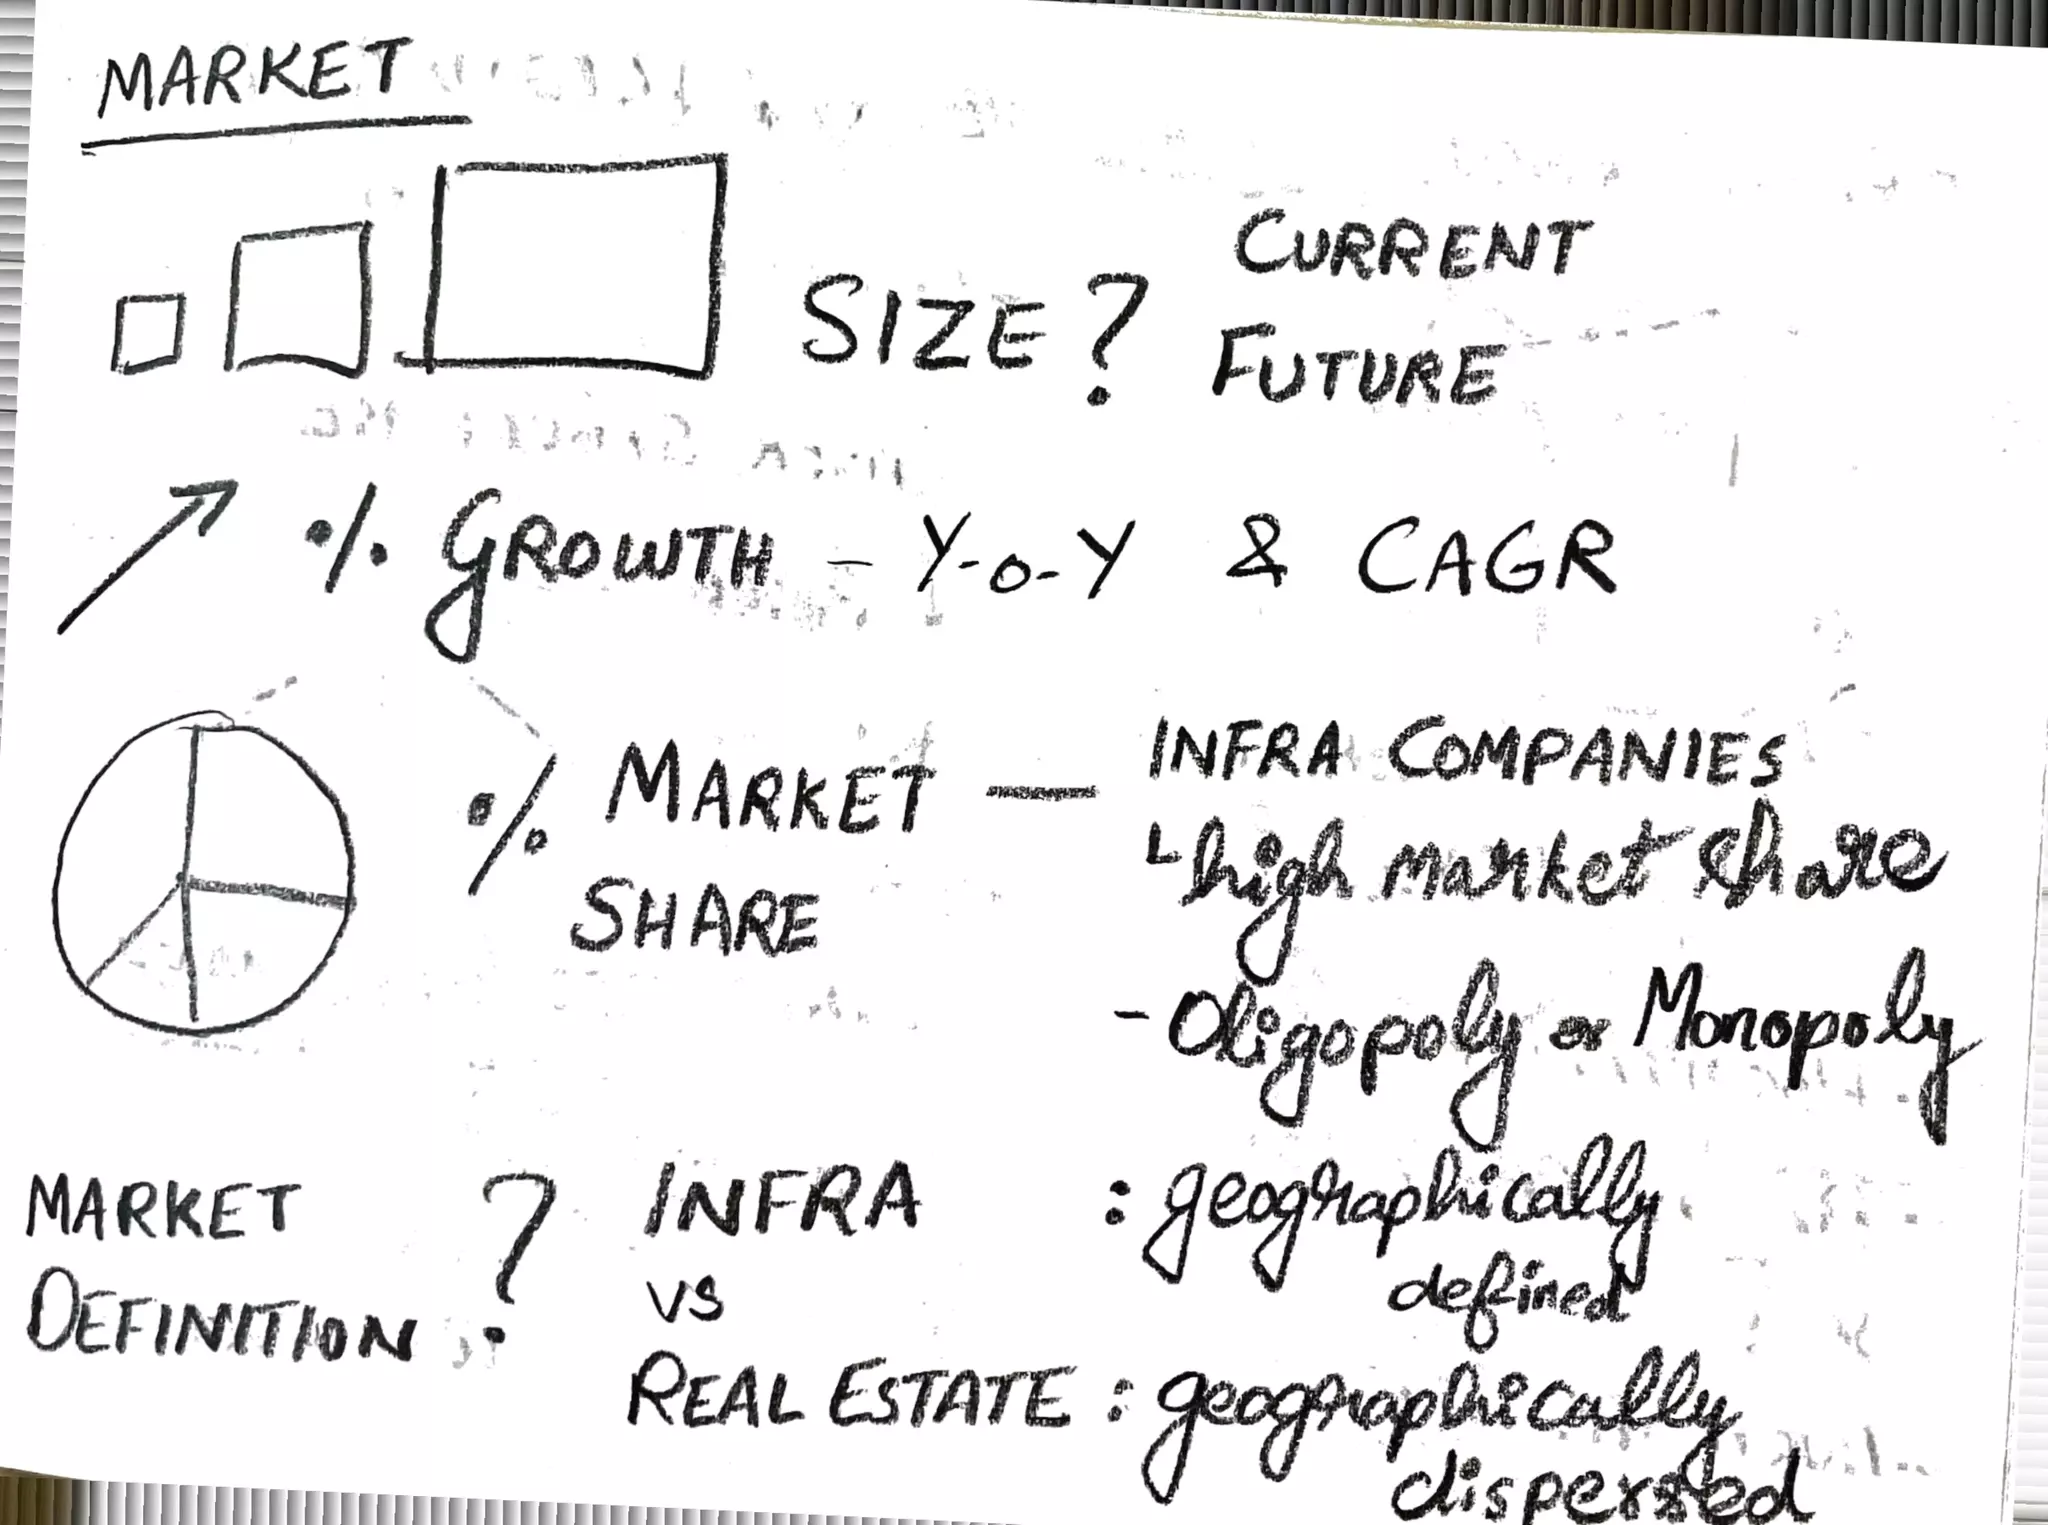 MARKET
SIZE ? CURRENT
FUTURE
% GROWTH - Y-o-Y & CAGR
% MARKET SHARE — INFRA COMPANIES
high market share
- Oligopoly or Monopoly
MARKET DEFINITION ?
INFRA : geographically defined
vs
REAL ESTATE : geographically dispersed